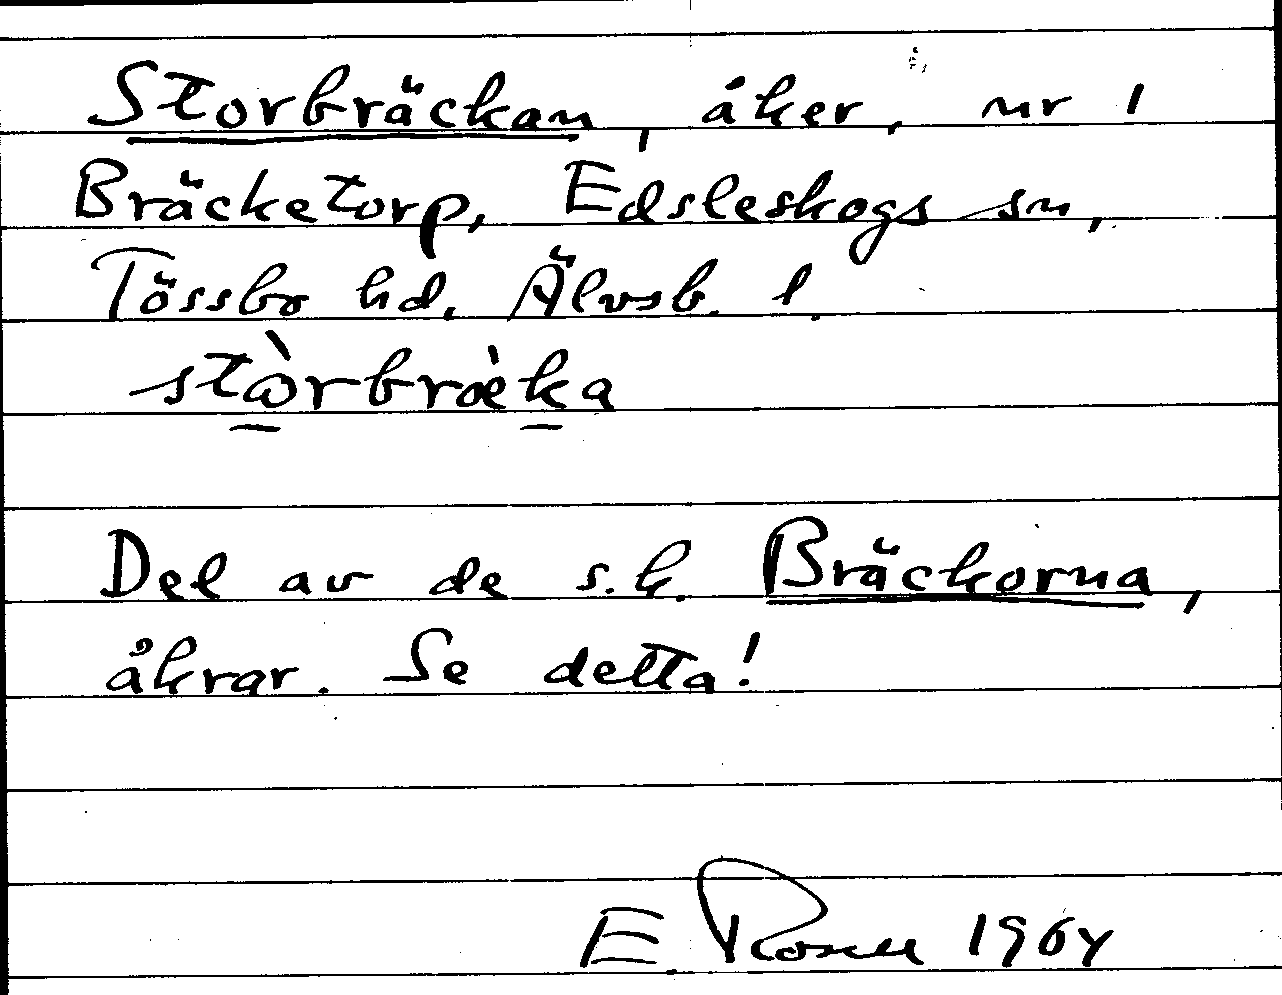 Storbräckan, åker, nr 1
Bräcketorp, Edsleskogs sn,
Tössbo hd. Älvsb. l.
stòrbræ̀ka
Del av de s.k. Bräckorna,
åkrar. Se detta!
E Rosell 1964